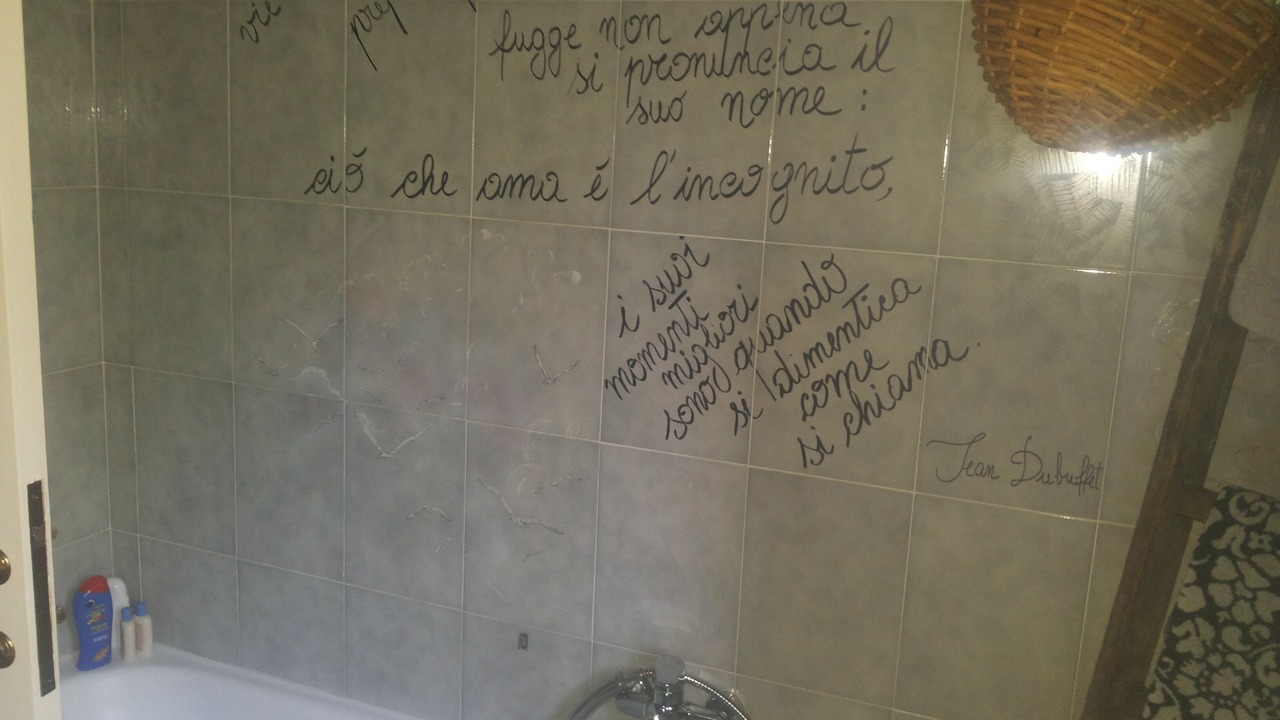 vie prep
fugge non appena
si pronuncia il
suo nome:
ciò che ama è l'incognito,
i suoi
momenti
migliori
sono quando
si dimentica
come
si chiama.
Jean Dubuffet